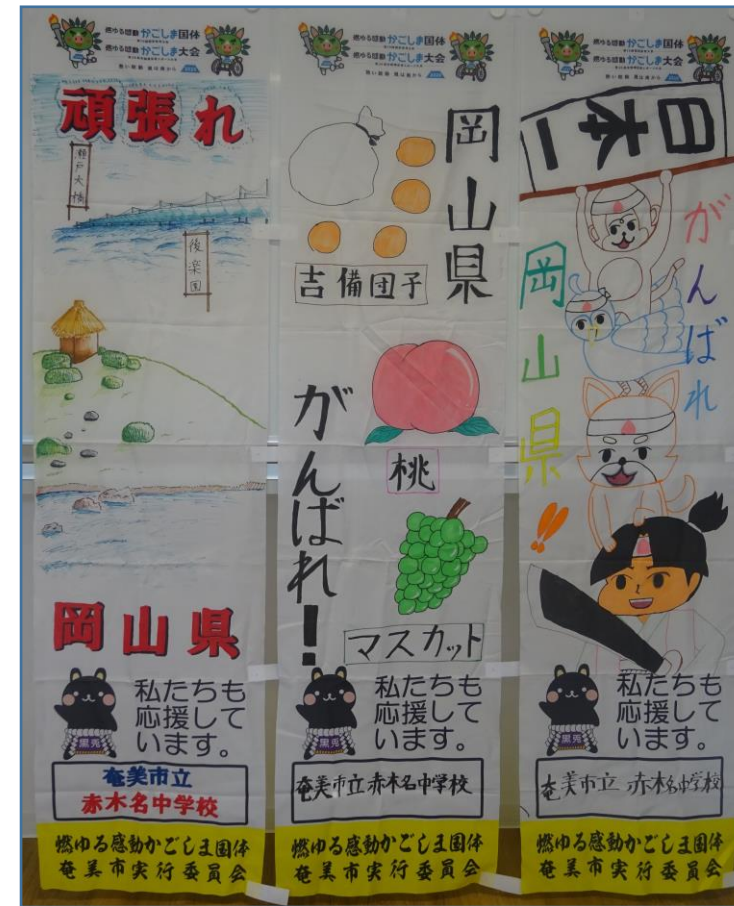 燃ゆる感動かごしま国体
燃ゆる感動かごしま大会
頑張れ
瀬戸大橋
後楽園
岡山県
私たちも
応援して
います。
黒兎
奄美市立
赤木名中学校
燃ゆる感動かごしま国体
奄美市実行委員会
燃ゆる感動かごしま国体
燃ゆる感動かごしま大会
岡山県
吉備団子
がんばれ!
桃
マスカット
私たちも
応援して
います。
黒兎
奄美市立赤木名中学校
燃ゆる感動かごしま国体
奄美市実行委員会
燃ゆる感動かごしま国体
燃ゆる感動かごしま大会
日本一
がんばれ
岡山県!!
私たちも
応援して
います。
黒兎
奄美市立 赤木名中学校
燃ゆる感動かごしま国体
奄美市実行委員会